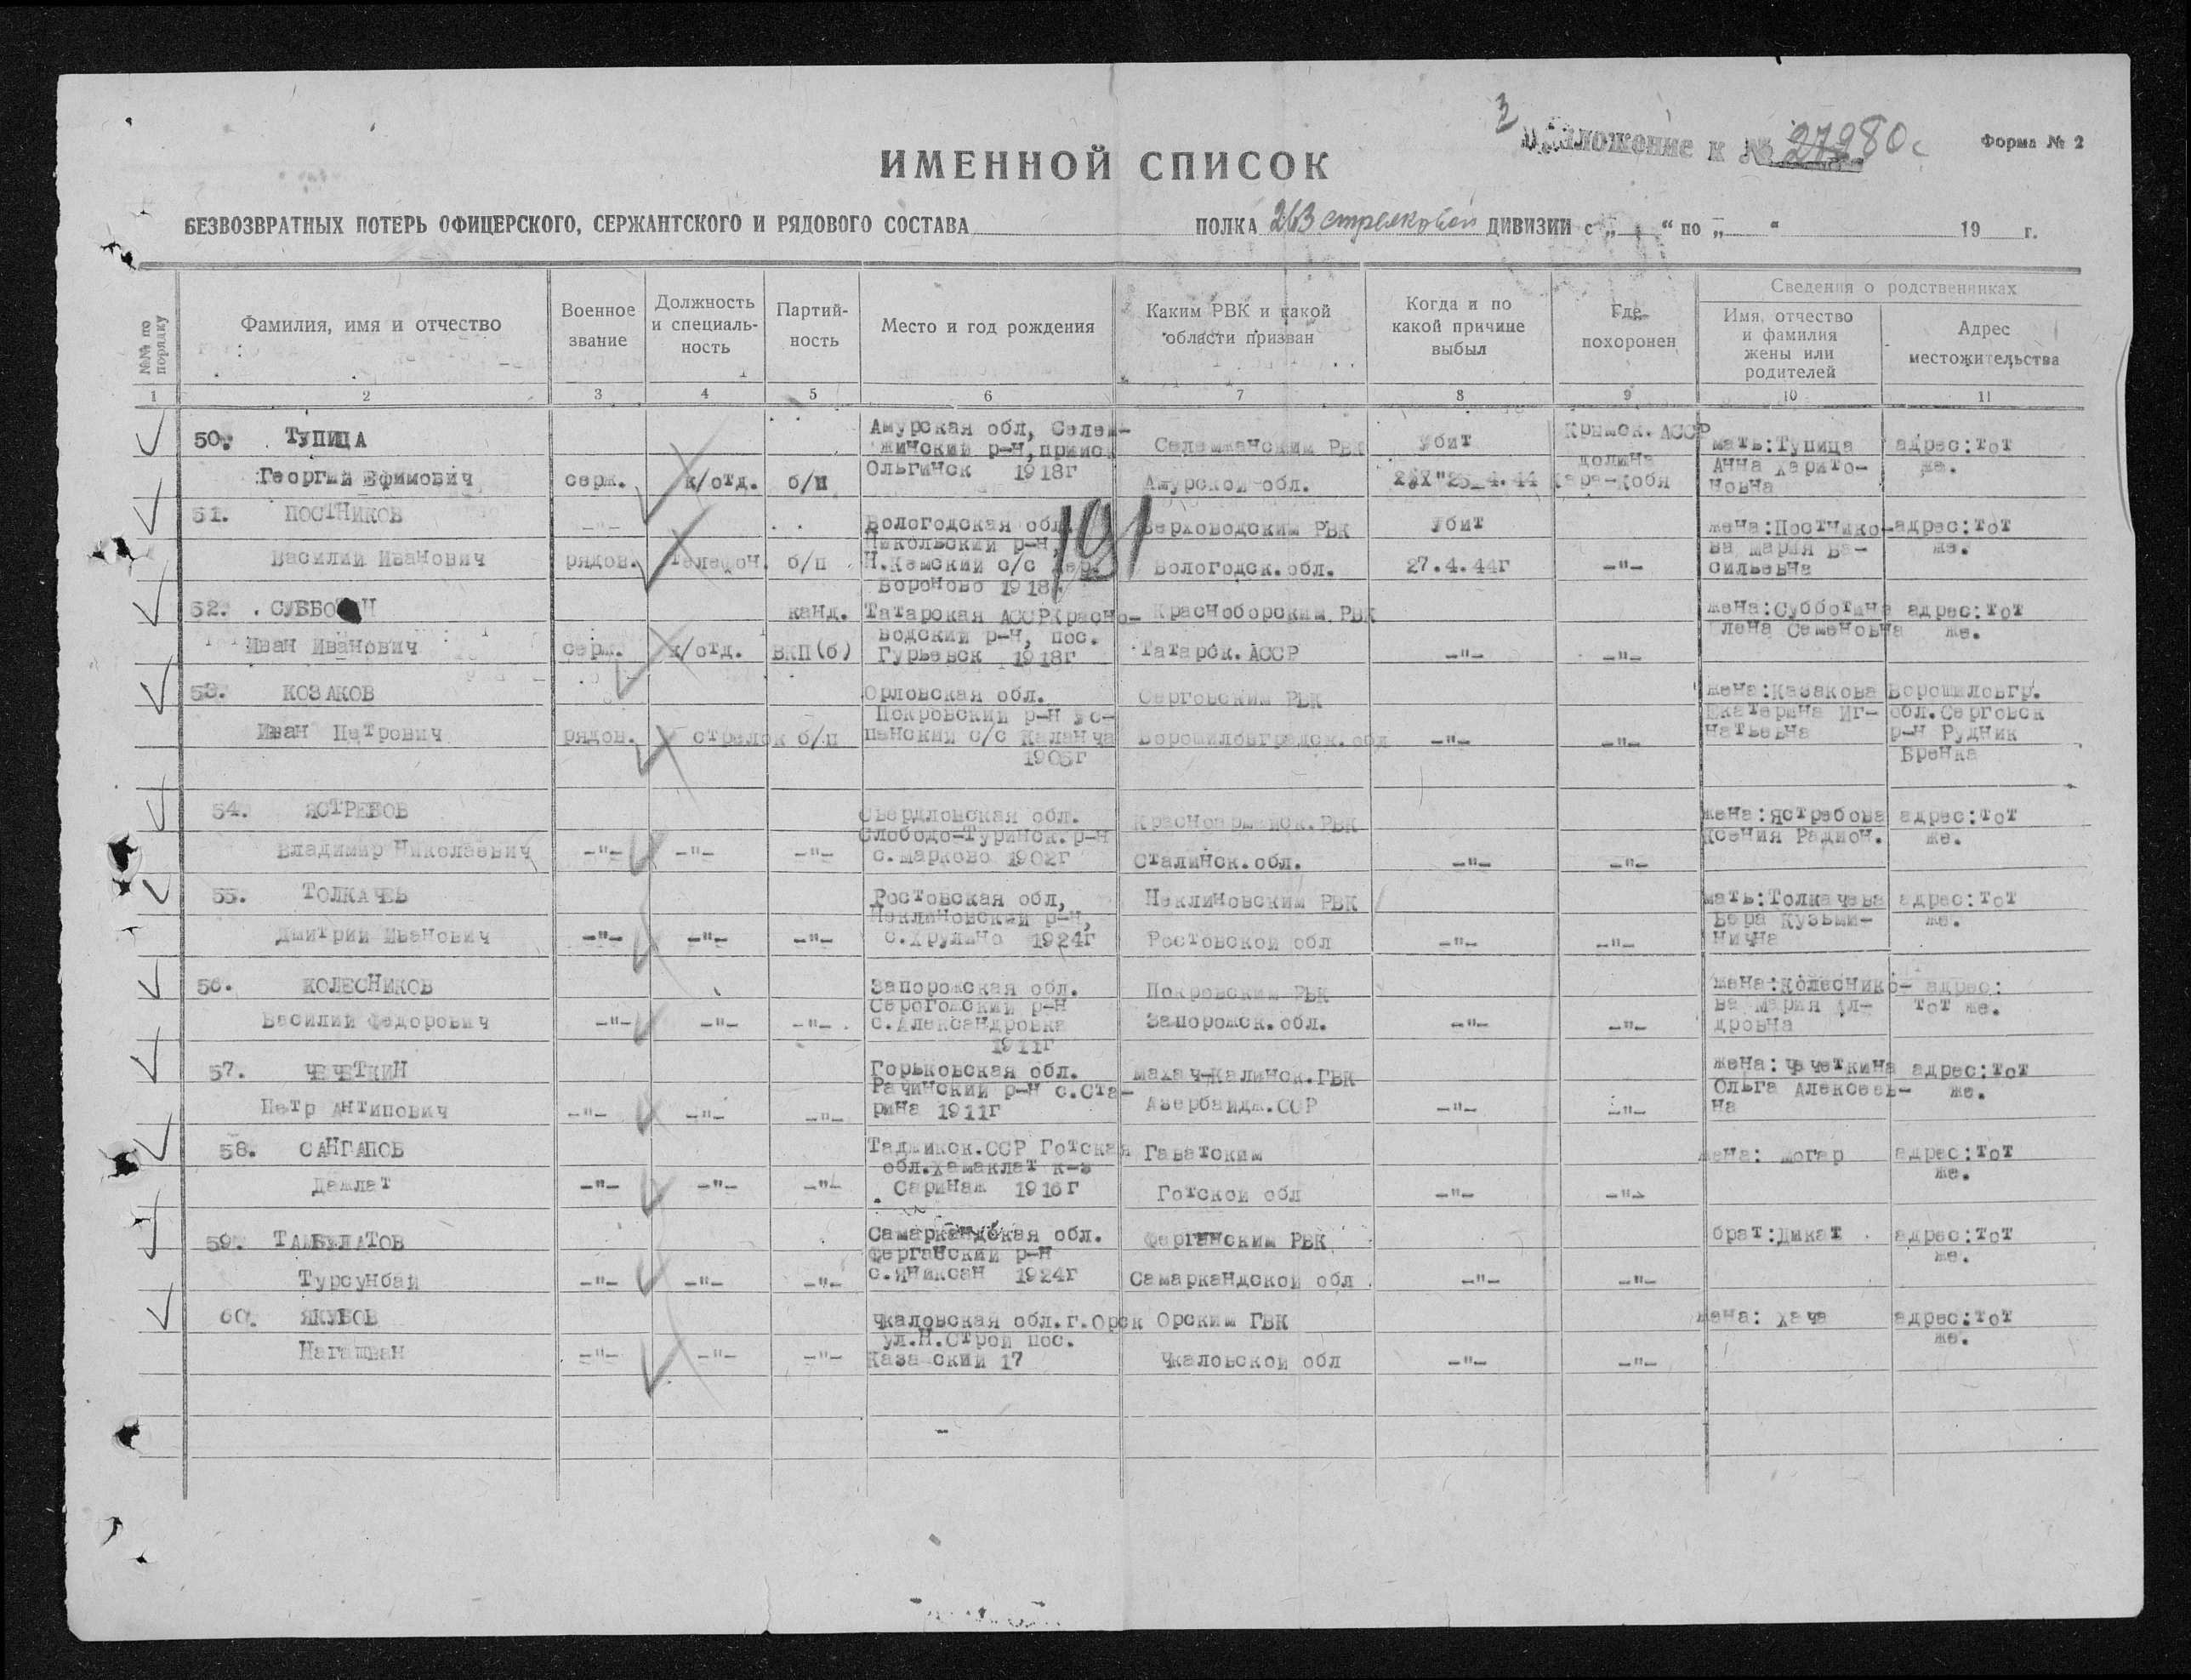 3
Приложение к № 27980с
Форма № 2
ИМЕННОЙ СПИСОК
БЕЗВОЗВРАТНЫХ ПОТЕРЬ ОФИЦЕРСКОГО, СЕРЖАНТСКОГО И РЯДОВОГО СОСТАВА ПОЛКА 263 стрелковой ДИВИЗИИ с „ “ по „ “ 19 г.
№№ по порядку
Фамилия, имя и отчество
Военное звание
Должность и специаль-ность
Партий-ность
Место и год рождения
Каким РВК и какой области призван
Когда и по какой причине выбыл
Где похоронен
Сведения о родственниках
Имя, отчество и фамилия жены или родителей
Адрес местожительства
1 2 3 4 5 6 7 8 9 10 11
191
50. ТУПИЦА Амурская обл, Селем- Селемжанским РВК убит Крымск. АССР мать:Тупица адрес:тот
жинский р-н,прииск долина Анна Харито- же.
Георгий Ефимович серж. к/отд. б/п Ольгинск 1918г Амурской обл. 4.44 Кара-Кобя новна
51. ПОСТНИКОВ -"- Вологодская обл. Верховодским РВК убит жена:Постнико- адрес:тот
Никольский р-н, ва Мария Ва- же.
Василий Иванович рядов. телефон. б/п Н.Кемский с/с дер. Вологодск.обл. 27.4.44г -"- сильевна
Вороново 1918
52. СУББОТИН канд. Татарская АССР Красно- Красноборским РВК жена:Субботина адрес:тот
водский р-н, пос. Елена Семеновна же.
Иван Иванович серж. к/отд. ВКП(б) Гурьевск 1918г Татарск.АССР -"- -"-
53. КОЗАКОВ Орловская обл. Серговским РВК жена:Казакова Ворошиловгр.
Покровский р-н Ус- Екатерина Иг- обл.Серговск
Иван Петрович рядов. стрелок б/п пенский с/с Каланча Ворошиловградск.обл -"- -"- натьевна р-н Рудник
1905г Бренка
54. ЯСТРЕБОВ Свердловская обл. Красноармейск.РВК жена:Ястребова адрес:тот
Слободо-Туринск.р-н Ксения Радион. же.
Владимир Николаевич -"- -"- -"- с.Марково 1902г Сталинск.обл. -"- -"-
55. ТОЛКАЧЕВ Ростовская обл, Неклиновским РВК мать:Толкачева адрес:тот
Неклиновский р-н, Вера Кузьми- же.
Дмитрий Иванович -"- -"- -"- с.Хрулино 1924г Ростовской обл -"- -"- нична
56. КОЛЕСНИКОВ Запорожская обл. Покровским РВК жена:Колеснико- адрес:
Серогожский р-н ва Мария Ал- тот же.
Василий Федорович -"- -"- -"- с.Александровка Запорожск.обл. -"- -"- дровна
1911г
57. ЧЕЧЕТКИН Горьковская обл. Махач-Калинск.ГВК жена:Чечеткина адрес:тот
Рачинский р-н с.Ста- Ольга Алексеев- же.
Петр Антипович -"- -"- -"- рина 1911г Азербайдж.ССР -"- -"- на
58. САНГАПОВ Таджикск.ССР Готская Гаватским жена: Могар адрес:тот
обл.Хамаклат к-з же.
Давлат -"- -"- -"- Саринаж 1916г Готской обл -"- -"-
59. ТАМБУЛАТОВ Самаркандская обл. Ферганским РВК брат:Дикат адрес:тот
Ферганский р-н же.
Турсунбай -"- -"- -"- с.Яниксан 1924г Самаркандской обл -"- -"-
60. ЯКУБОВ Чкаловская обл.г.Орск Орским ГВК жена: Хача адрес:тот
ул.Н.Строй пос. же.
Нагашван -"- -"- -"- Каза ский 17 Чкаловской обл -"- -"-